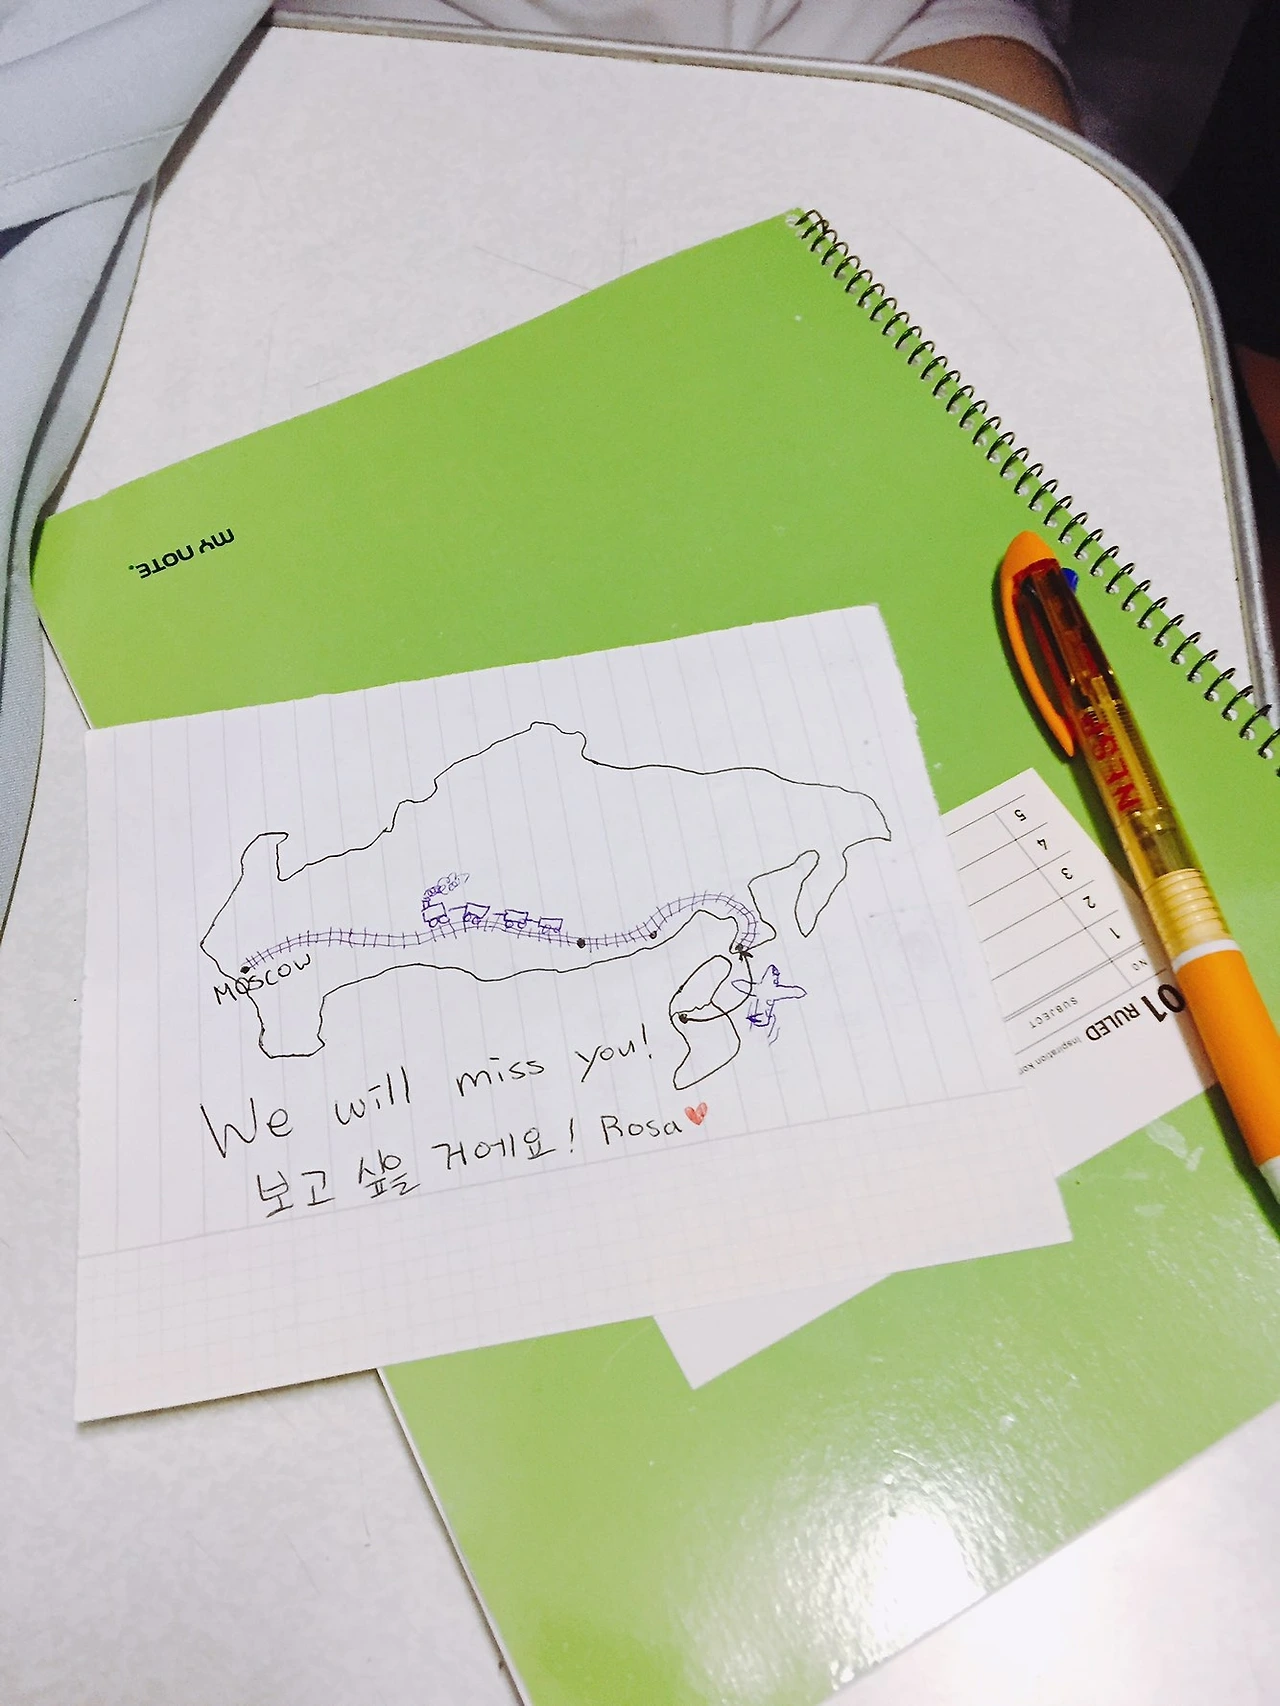 MY NOTE.
MOSCOW
We will miss you!
보고 싶을 거에요! Rosa
5
4
3
2
1
NO
SUBJECT
01 RULED